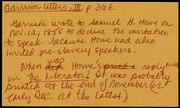 Garrison Letters III p 366.
Garrison wrote to Samuel G. Howe on
Nov. 12, 1856 to decline the invitation
to speak because Howe had also
invited pro-slavery speakers.
When was Howe's printed reply
in the Liberator? It was probably
printed at the end of November or
early Dec. at the latest)